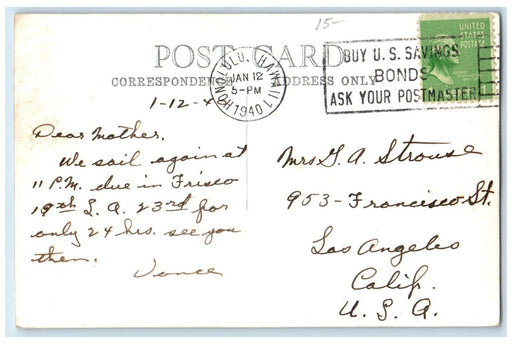 15-
POST CARD
CORRESPONDENCE ADDRESS ONLY
HONOLULU, HAWAII 1
JAN 12
5-PM
1940
BUY U.S. SAVINGS
BONDS
ASK YOUR POSTMASTER
UNITED
STATES
POSTAGE
1-12-4
Dear Mother,
We sail again at
11 P.M. due in Frisco
19th L.A. 23rd for
only 24 hrs. see you
then.
Vance
Mrs G. A. Strouse
953-Francisco St.
Los Angeles
Calif.
U.S.A.